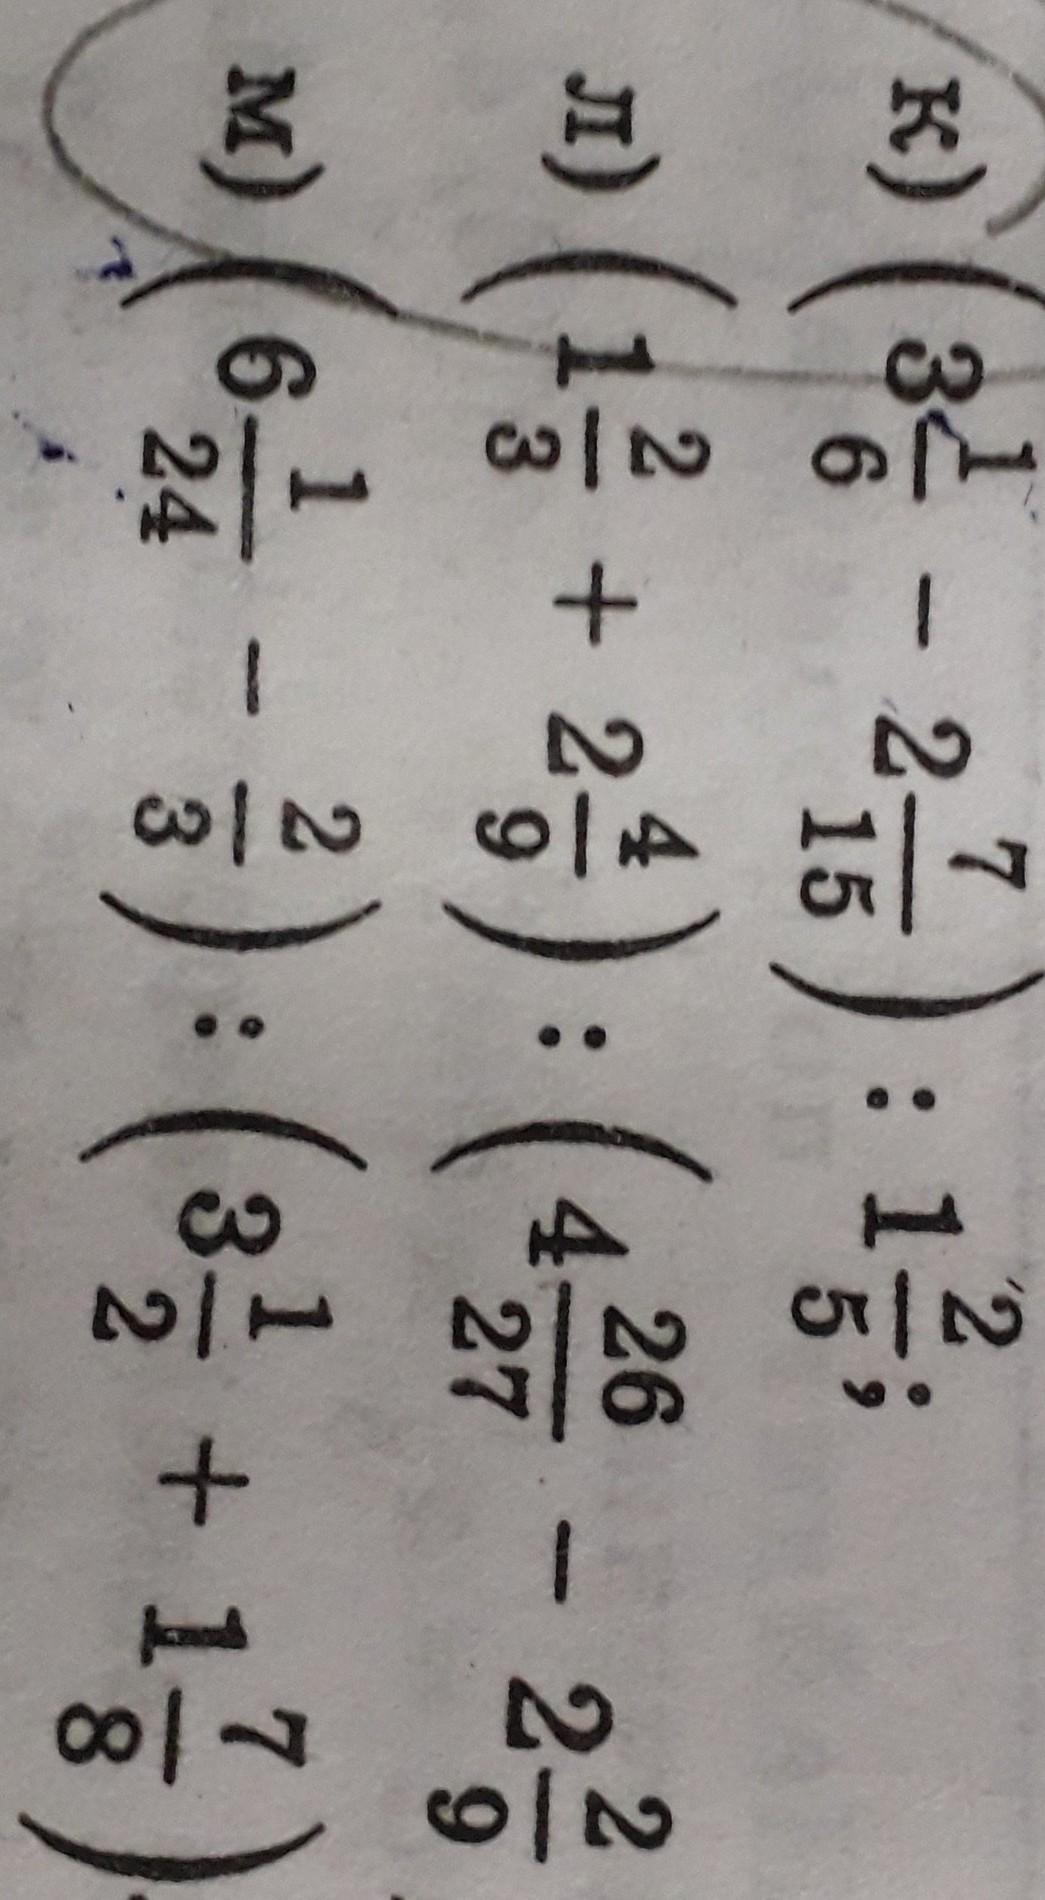 к) (3 1/6 − 2 7/15) : 1 2/5;
л) (1 2/3 + 2 4/9) : (4 26/27 − 2 2/9
м) (6 1/24 − 2/3) : (3 1/2 + 1 7/8)